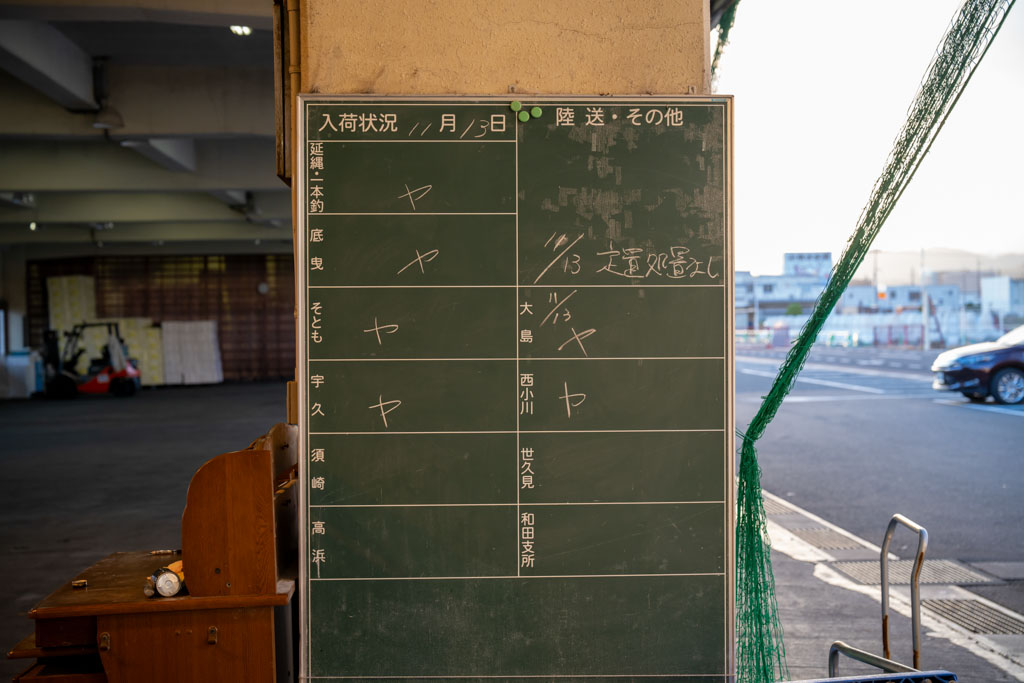 入荷状況 11月13日
陸送・その他
延縄・一本釣 ヤ
底曳 ヤ
11/13 定置処置なし
そとも ヤ
大島 11/13 ヤ
宇久 ヤ
西小川 ヤ
須崎
世久見
高浜
和田支所